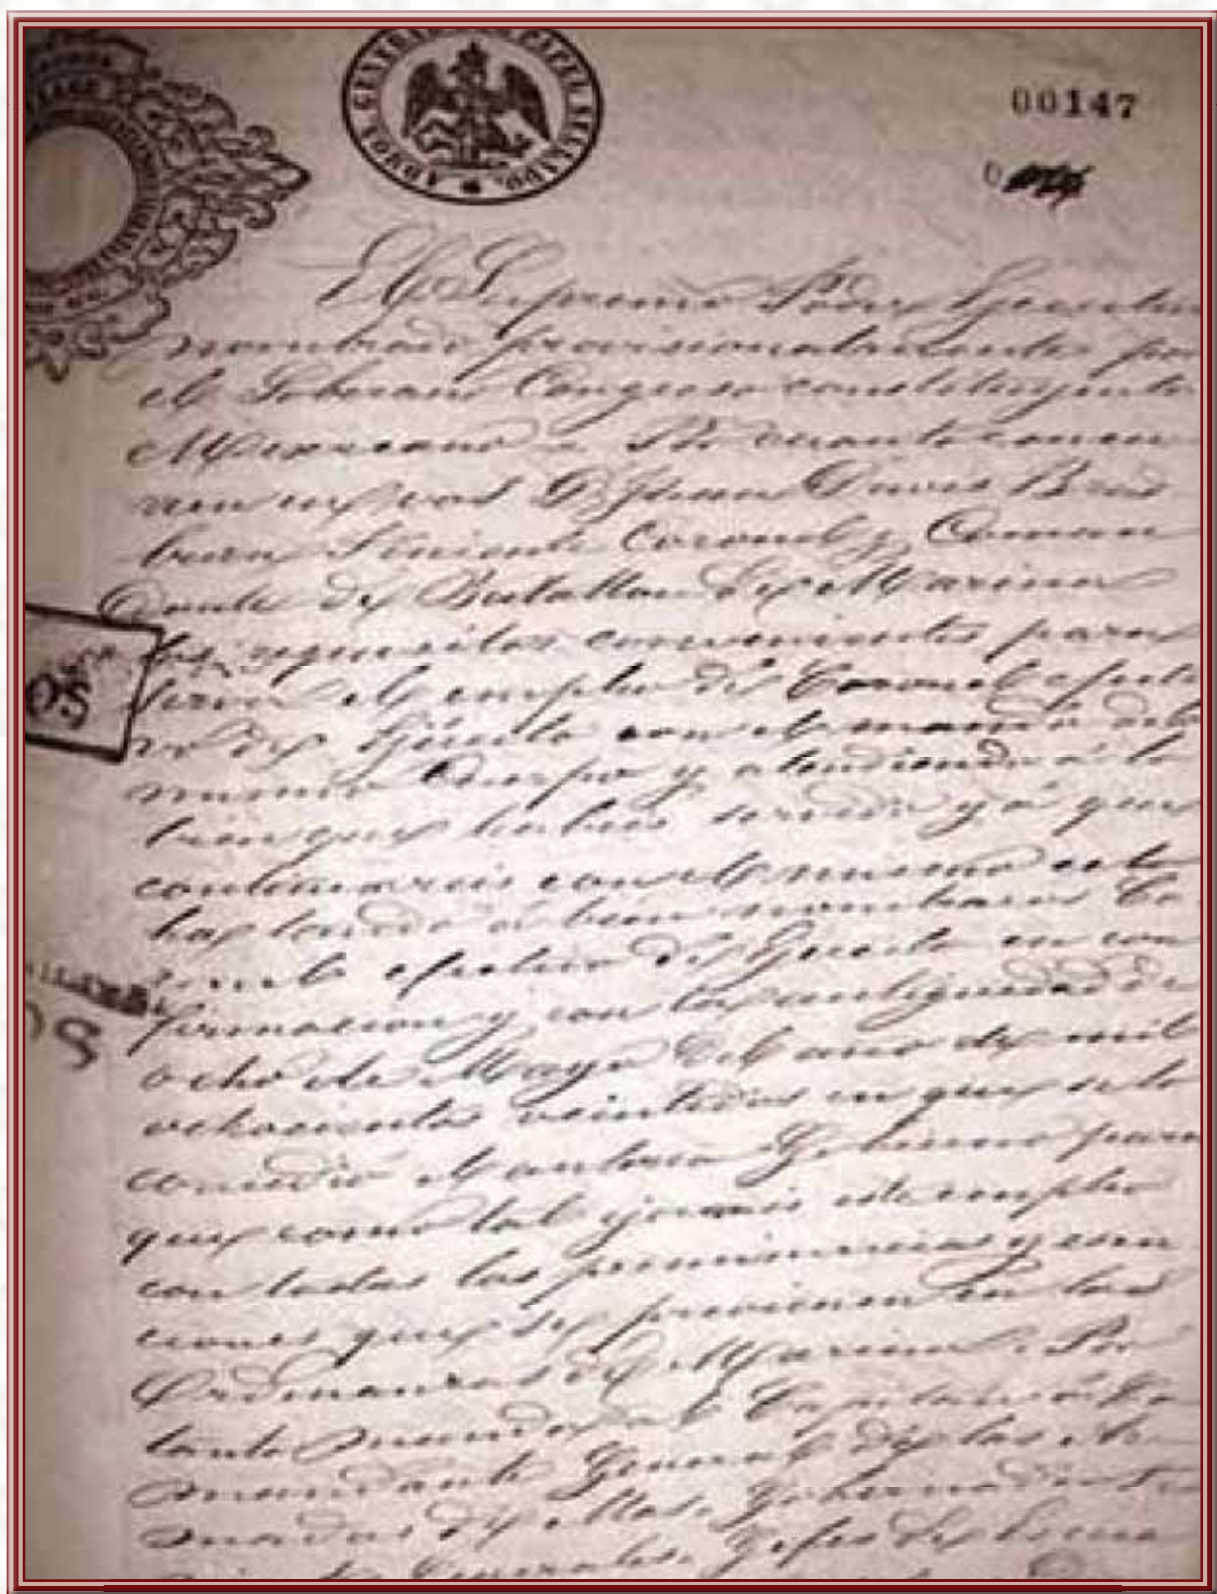 ADMON. GENERAL DEL PAPEL SELLADO.
00147
0
OS
OS
El Supremo Poder Ejecutivo
nombrado provisionalmente por
el Soberano Congreso constituyente
Mexicano. Por cuanto concu
rren en vos D. Juan Davis Brad
burn Teniente Coronel y Coman
dante del Batallon de Marina
los requisitos convenientes para
servir el empleo de Coronel efecti
vo de Ejército con el mando del
mismo Cuerpo y atendiendo á lo
bien que habeis servido y á que
continuareis con el mismo celo
ha tenido á bien nombraros Co
ronel efectivo de Ejército en con
firmacion y con la antigüedad de
ocho de Mayo del año de mil
ochocientos veintidos en que se lo
concedió el anterior Gobierno para
que como tal ejerzais este empleo
con todas las preeminencias y esen
ciones que se previenen en las
Ordenanzas de Marina. Por
tanto manda al Capitan ó Co
mandante General de las Ar
madas de Mar, Gobernador
Generales, Gefes de Escua